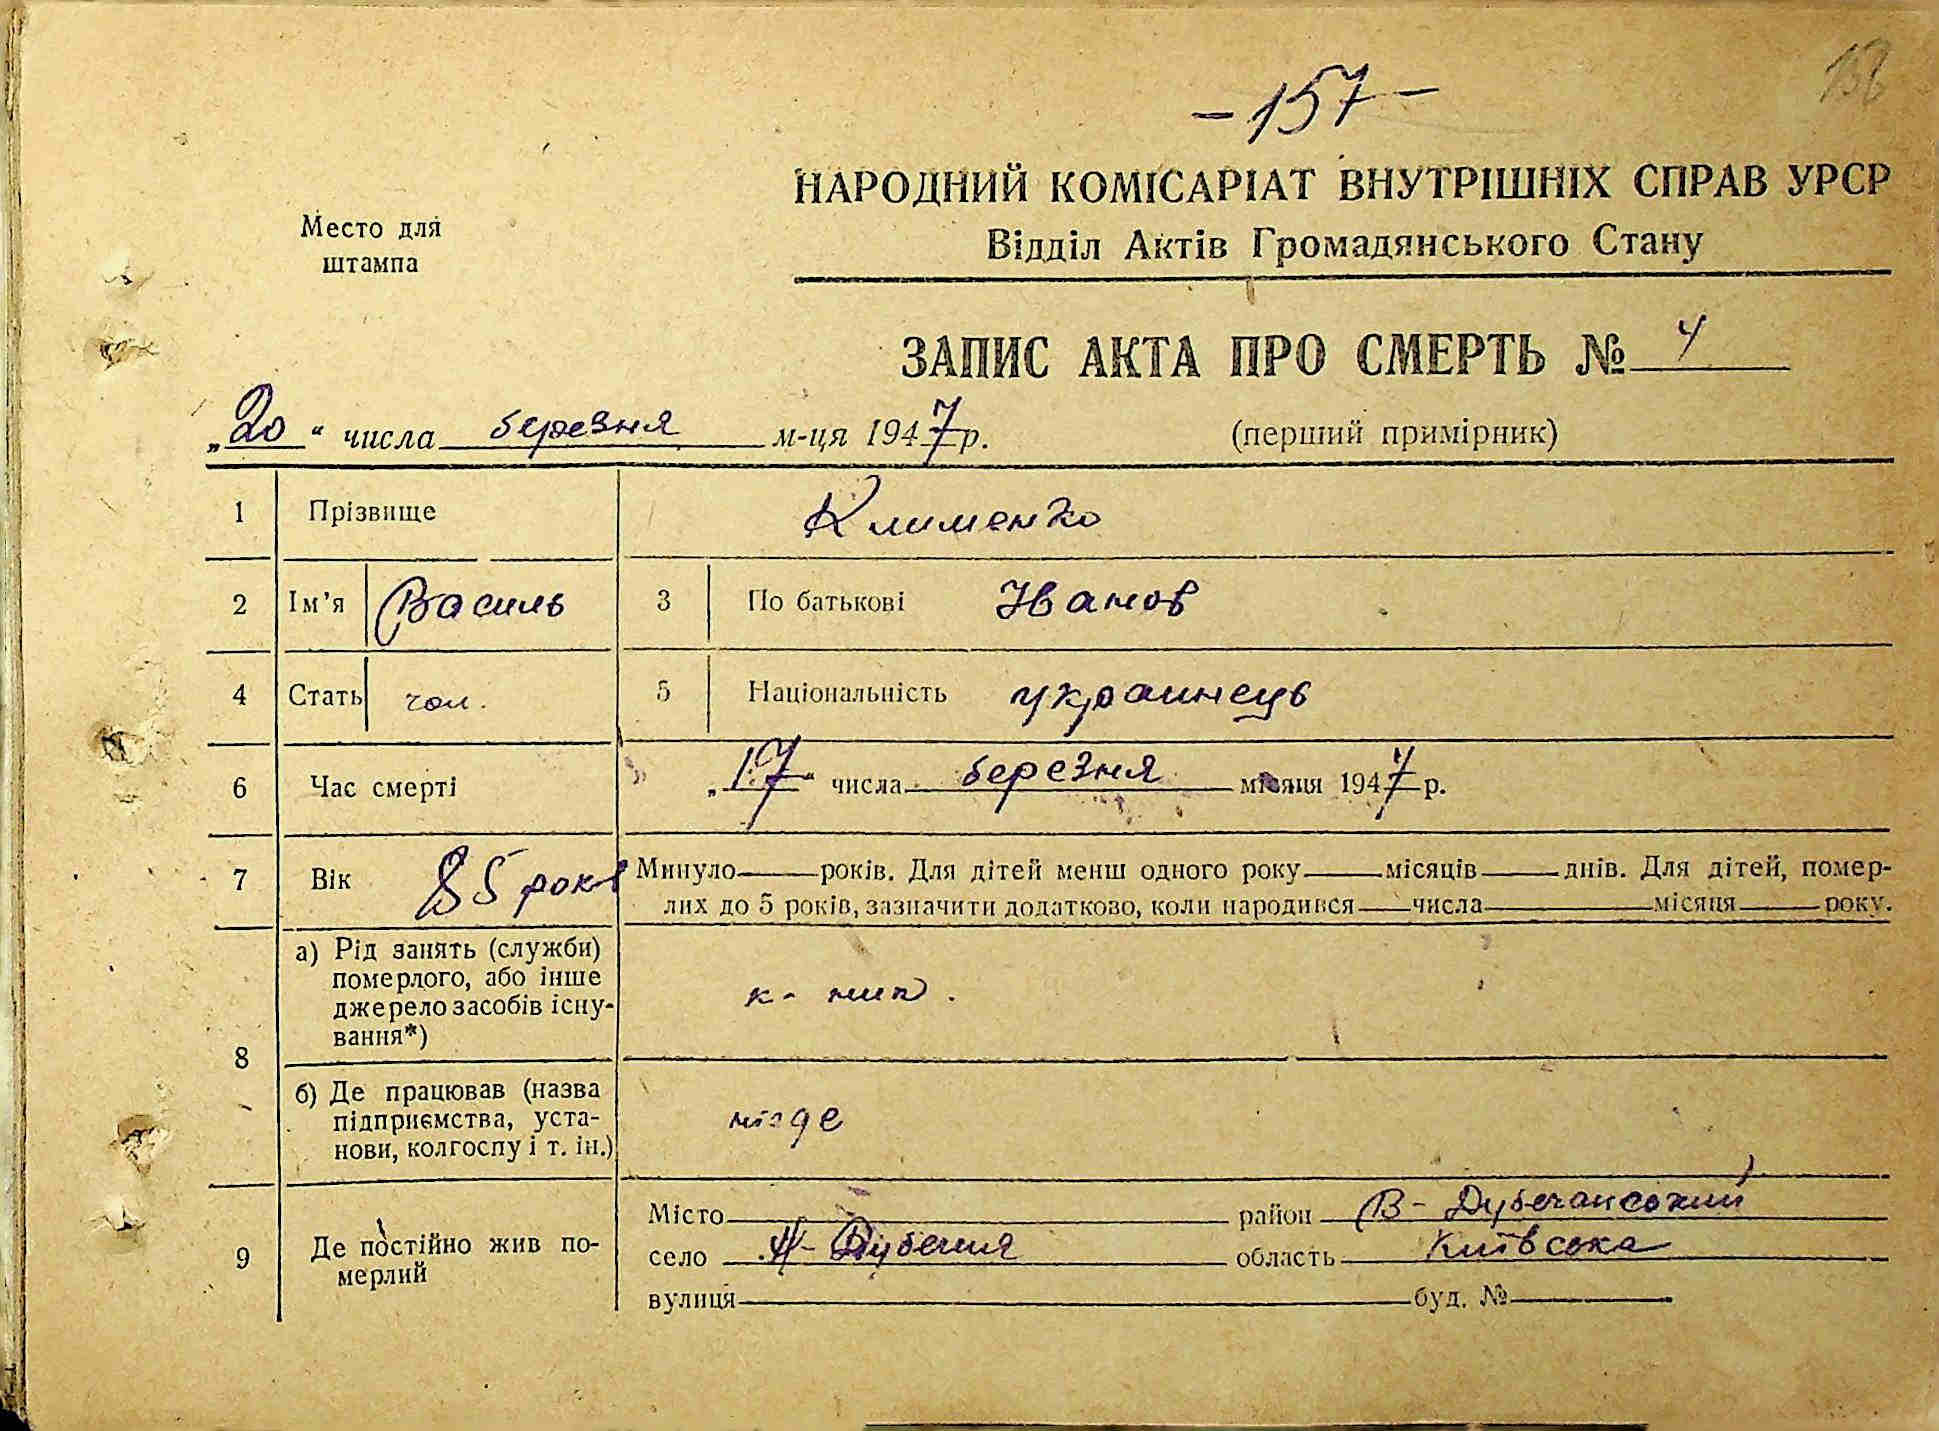 158
- 157 -
Место для
штампа
НАРОДНИЙ КОМІСАРІАТ ВНУТРІШНІХ СПРАВ УРСР
Відділ Актів Громадянського Стану
ЗАПИС АКТА ПРО СМЕРТЬ № 4
„20“ числа березня м-ця 1947 р. (перший примірник)
1 Прізвище Клименко
2 Ім’я Василь 3 По батькові Іванов
4 Стать чол. 5 Національність украинець
6 Час смерті „17“ числа березня місяця 1947 р.
7 Вік 85 років Минуло років. Для дітей менш одного року місяців днів. Для дітей, помер-
лих до 5 років, зазначити додатково, коли народився числа місяця року.
8 а) Рід занять (служби)
померлого, або інше
джерело засобів існу-
вання*)
к-
б) Де працював (назва
підприємства, уста-
нови, колгоспу і т. ін.)
нігде
9 Де постійно жив по-
мерлий
Місто район В-Дубечанський
село Н-Дубечня область Київська
вулиця буд. №